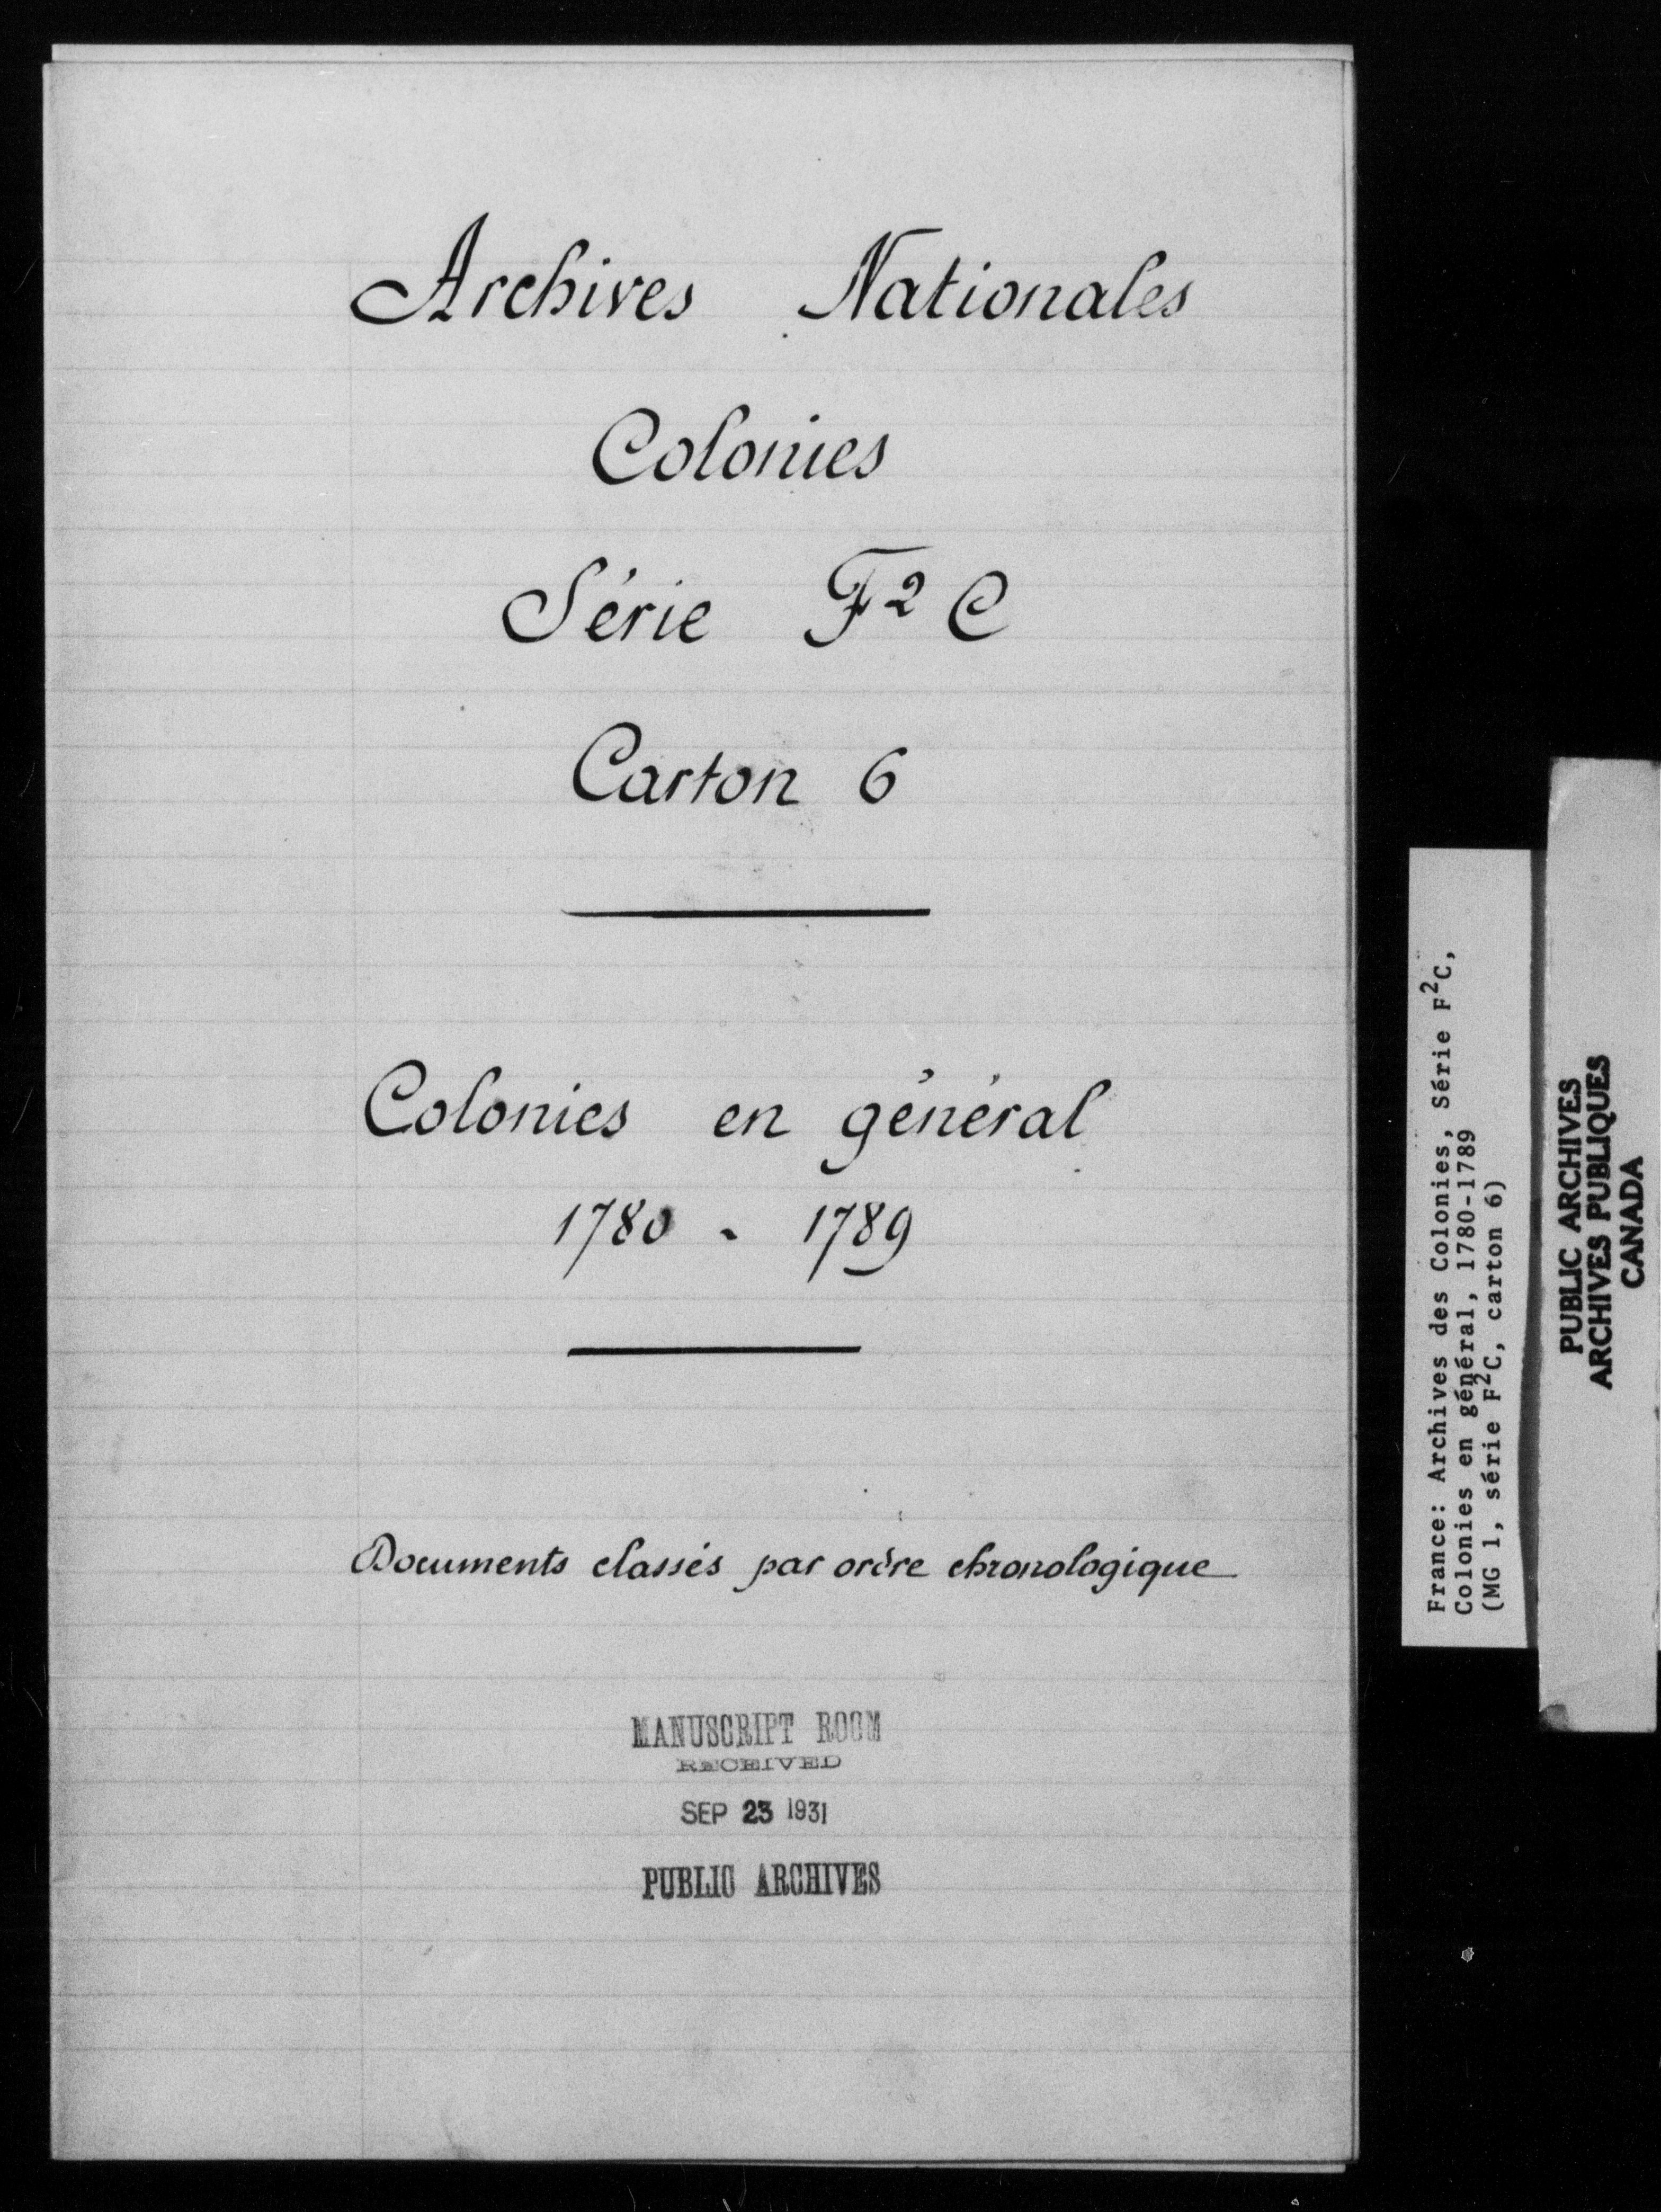 Archives Nationales
Colonies
Série F² C
Carton 6
Colonies en général
1780 - 1789
Documents classés par ordre chronologique
MANUSCRIPT ROOM
RECEIVED
SEP 23 1931
PUBLIC ARCHIVES
France: Archives des Colonies, Série F²C,
Colonies en général, 1780-1789
(MG 1, série F²C, carton 6)
PUBLIC ARCHIVES
ARCHIVES PUBLIQUES
CANADA